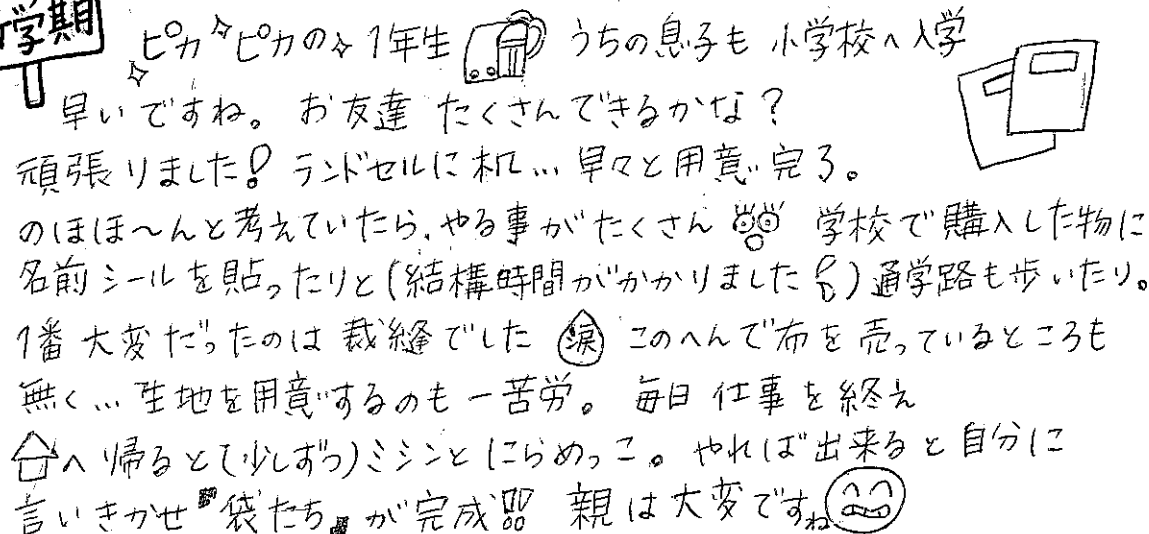 学期
ピカピカの 1年生 うちの息子も 小学校へ入学
早いですね。 お友達 たくさんできるかな？
頑張りました! ランドセルに机… 早々と用意完了。
のほほ〜んと考えていたら、やる事がたくさん 学校で購入した物に
名前シールを貼ったりと(結構時間がかかりました)通学路も歩いたり。
1番大変だったのは 裁縫でした 涙 このへんで布を売っているところも
無く… 生地を用意するのも一苦労。 毎日仕事を終え
へ帰ると(少しずつ)ミシンとにらめっこ。 やれば出来ると自分に
言いきかせ『袋たち』が完成!! 親は大変ですね